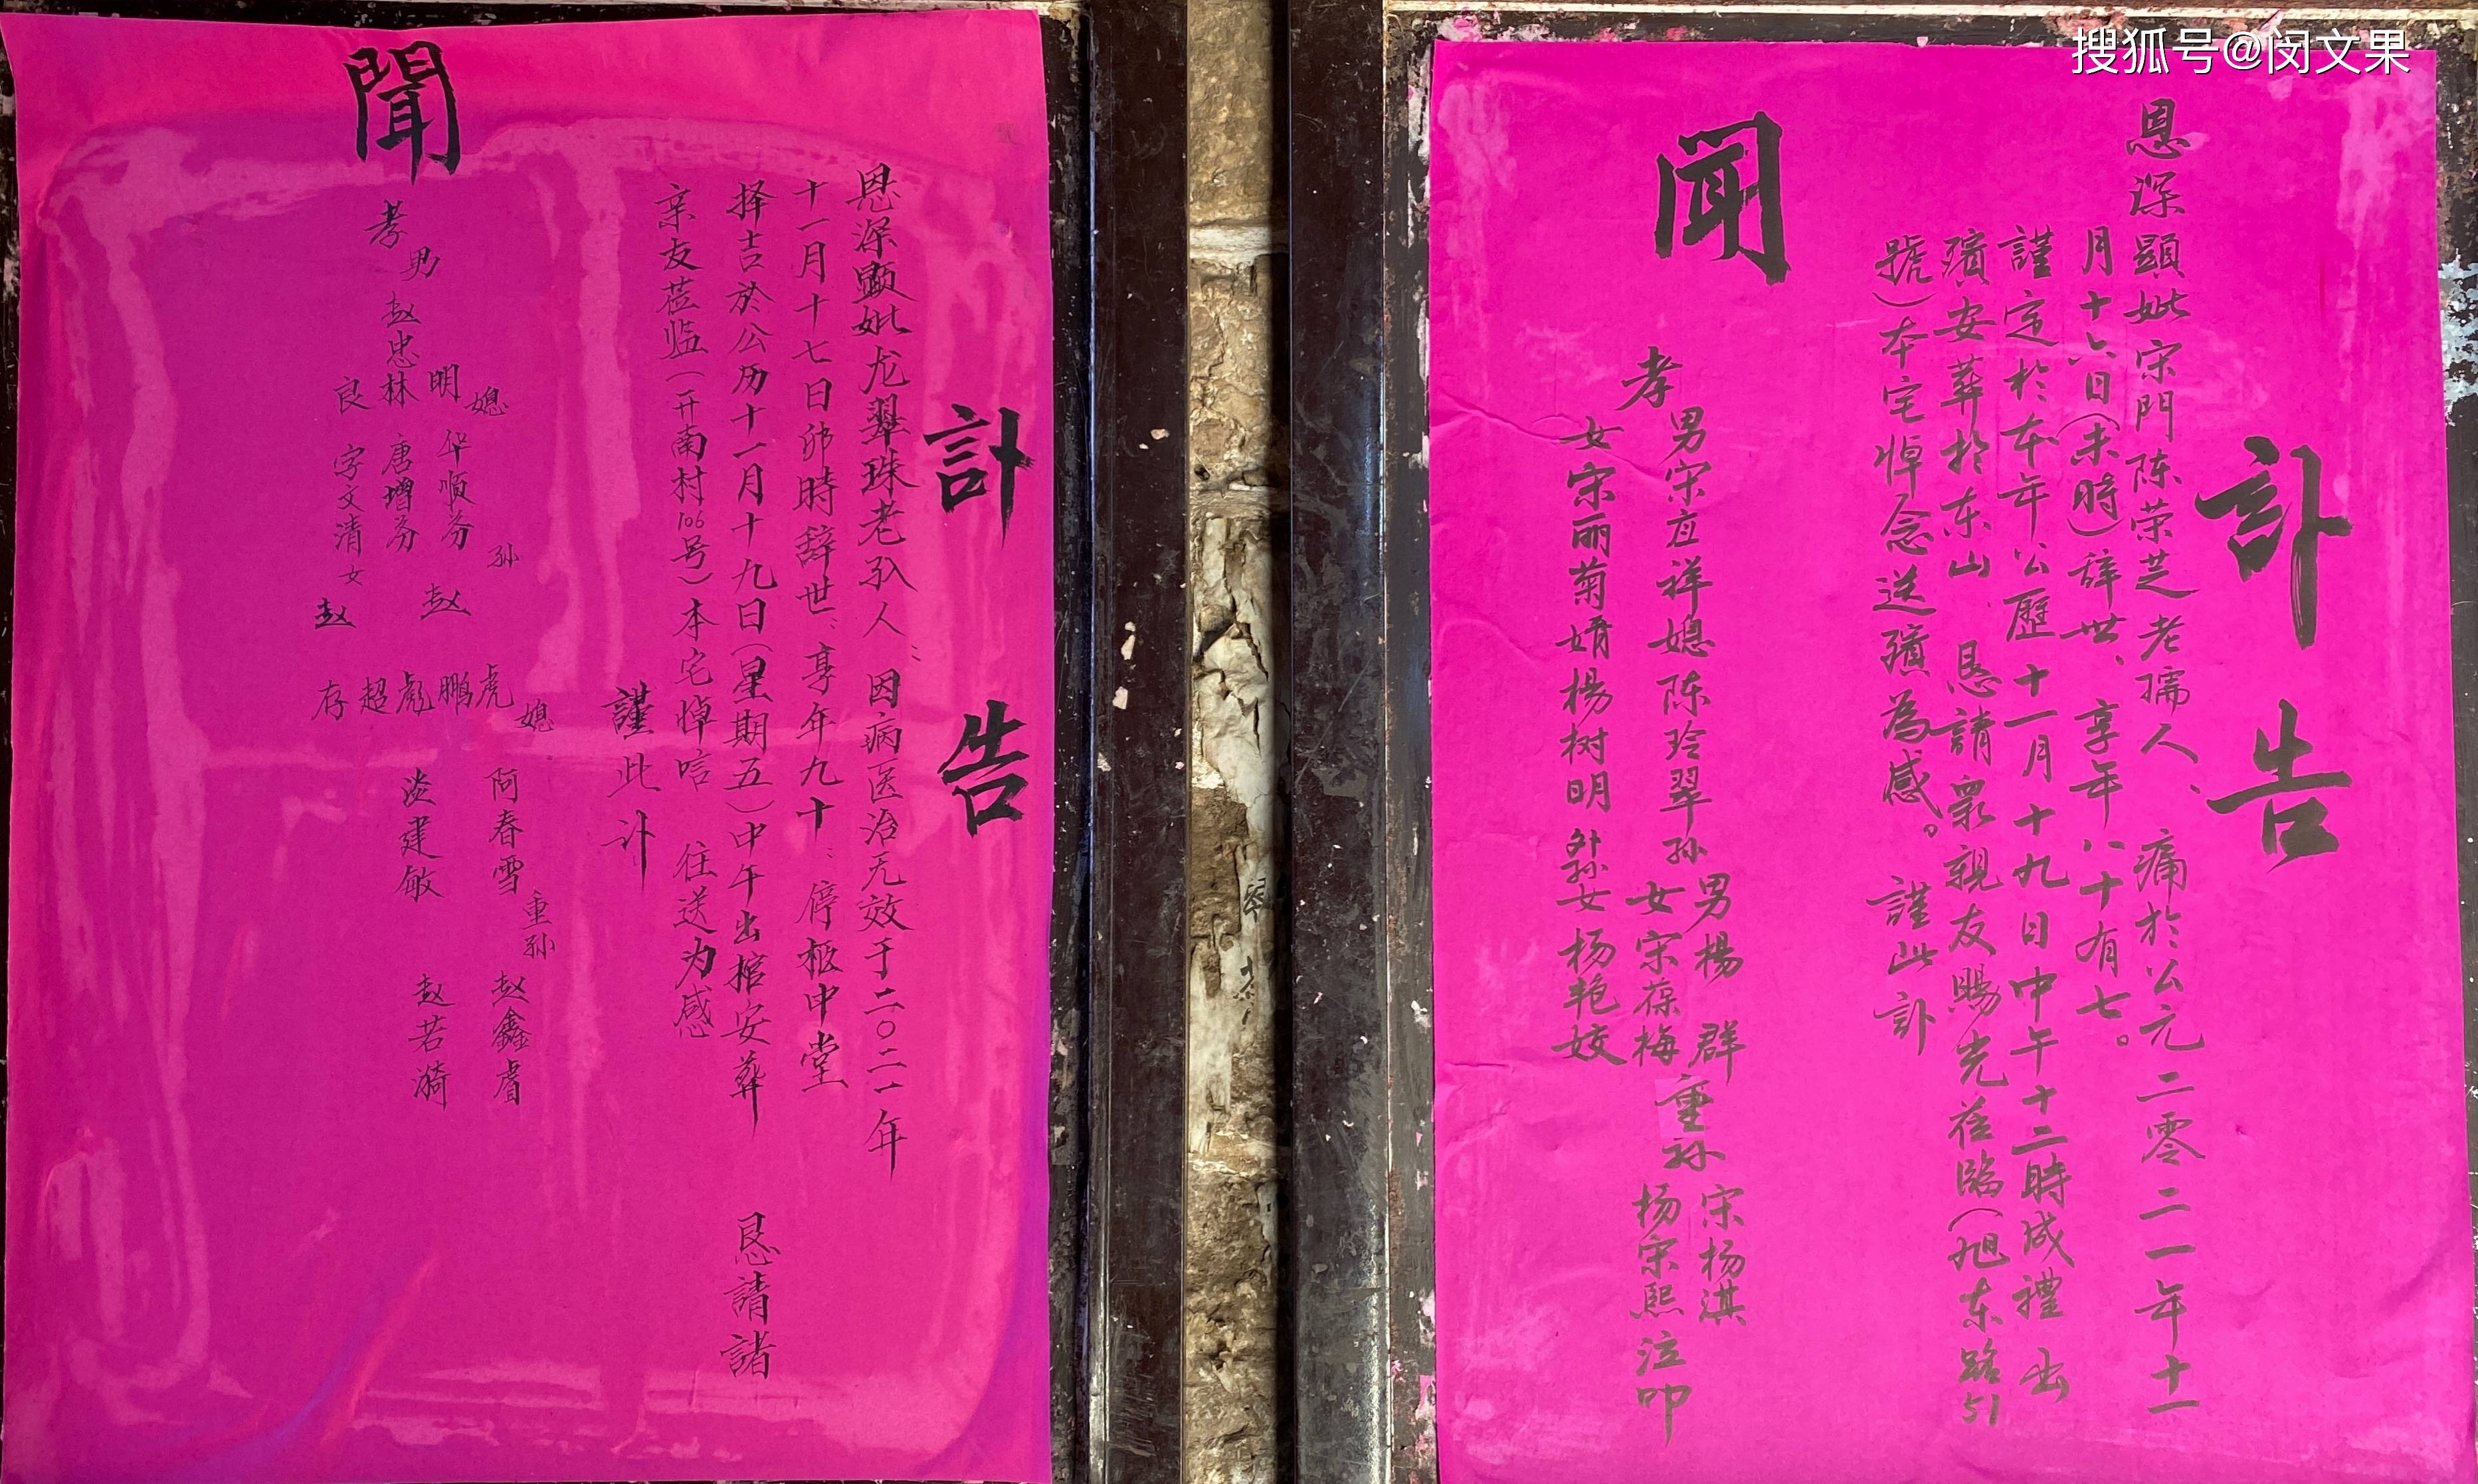 搜狐号@闵文果
訃告
恩深顕妣宋門陈荣芝老孺人、痛於公元二零二一年十一
月十六日(未時)辞世、享年八十有七。
謹定於本年公歷十一月十九日中午十二時成禮出
殯安葬於东山、恳請眾親友賜光莅臨(旭东路51
號)本宅悼念送殯為感。謹此訃
聞
孝
男宋应祥媳陈玲翠孙男楊群
女宋葆梅
女宋丽菊婿楊树明外孫女杨艳姣
重孙
宋杨淇
杨宋熙
泣叩
訃告
恩深顕妣龙翠珠老孺人、因病医治无效于二〇二一年
十一月十七日卯時辞世、享年九十、停柩中堂
择吉於公历十一月十九日(星期五)中午出棺安葬 恳請諸
亲友莅临(开南村106号)本宅悼唁 往送为感
謹此讣
聞
孝男赵忠
明
林
良
媳
华順芬
唐增芬
字文清
孙
赵
女
赵
虎
鹏
彪
超
存
媳
阿春雪
淡建敏
重孙
赵鑫睿
赵若漪